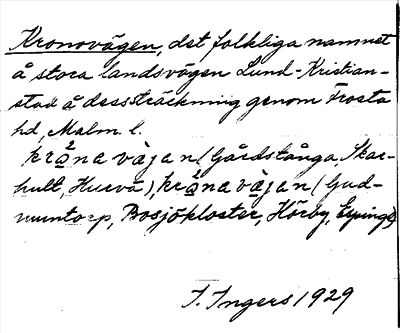 Kronovägen, det folkliga namnet
å stora landsvägen Lund-Kristian-
stad å dess sträckning genom Frosta
hd, Malm. l.
krå̱na vä̱jan (Gårdstånga, Skar-
hult, Hurva), krå̱na vä̱jan (Gud-
muntorp, Bosjökloster, Hörby, Espinge)
I. Ingers 1929